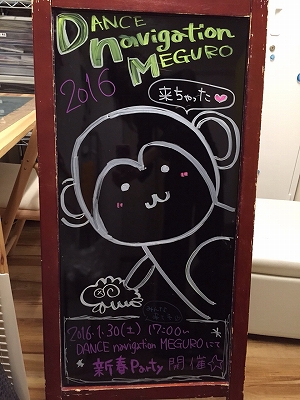 DANCE
navigation
MEGURO
2016
来ちゃった♥
2016.1.30(土) 17:00〜
DANCE navigation MEGUROにて
新春Party 開催☆